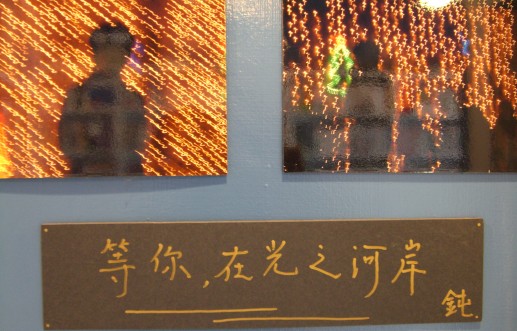 等你,在光之河岸
鈍